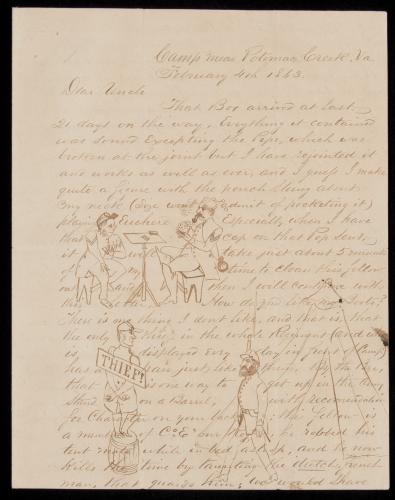 Camp near Potomac Creek, Va
February 4th 1863.
Dear Uncle
That Box arrived at last.
21 days on the way. Everything it contained
was sound Excepting the Pipe, which was
broken at the joint but I have rejointed it
and works as well as ever, and I guess I make
quite a figure with the pouch slung about
my neck (Size won't admit of pocketing it)
playing Euchere Especially when I have
that cap on that Pop sent.
it take just about 5 minutes
my time to clean this fellow
out and then I will continue with
this letter. How do you like
There is one thing I don't like, and that is that
the only in the whole Regiment (and
is, displayed Every day in front of Camp
has a just like
that is one way to get up in the
stand on a Barrel, with recommendation
for Character on your back
a member of Co E our Reg he robbed his
tent mate while in bed asleep, and he now
kills the time by taunting the
man, that guards him; who would shave
THIEF!